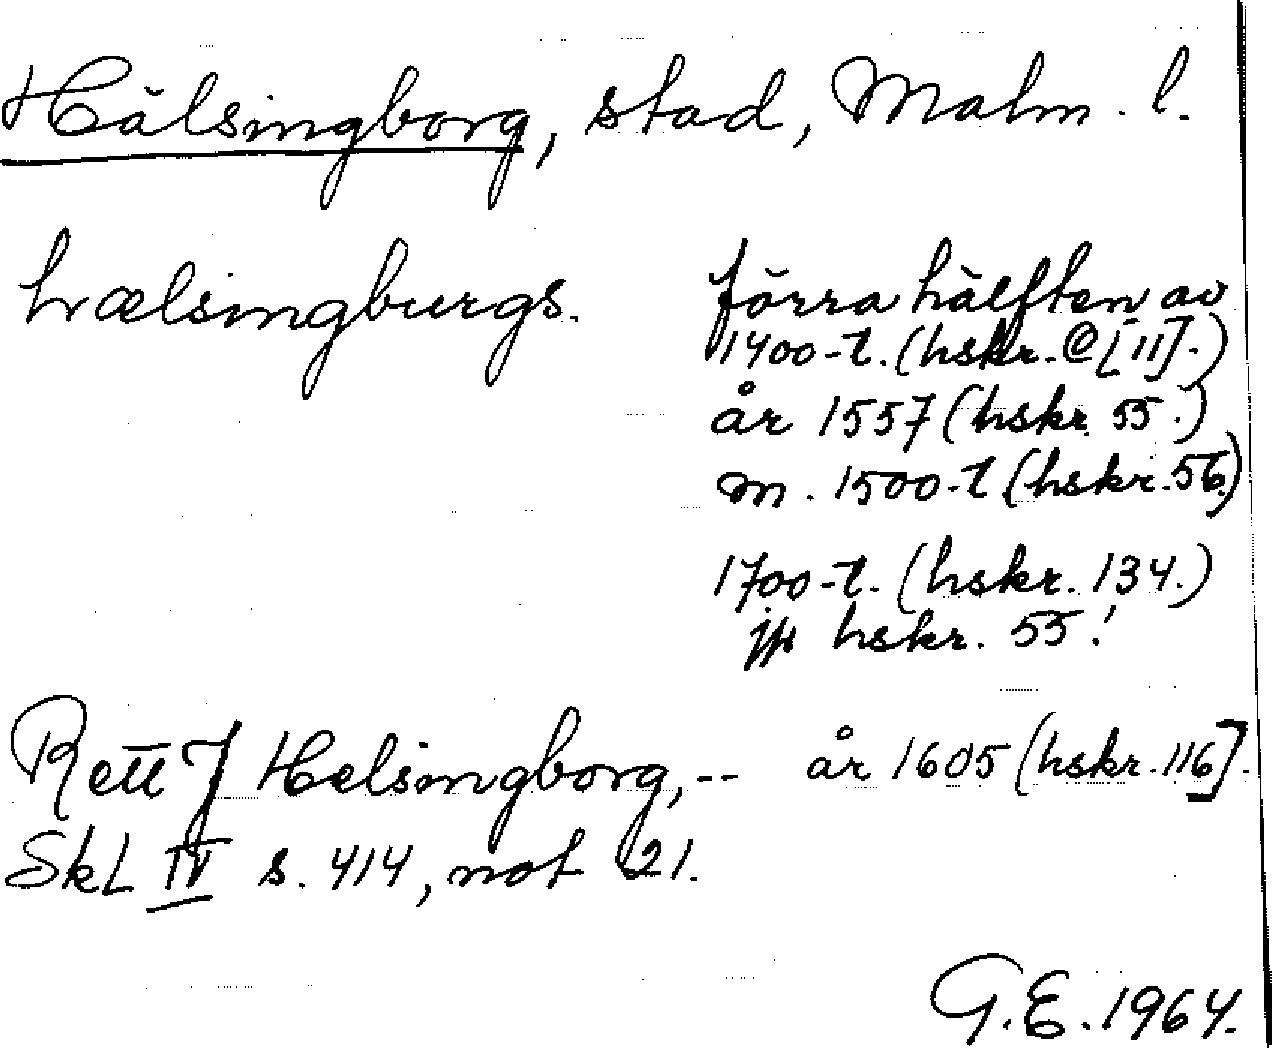 Hälsingborg, stad, Malm. l.
hælsingburgs. förra hälften av
1400-t. (hskr. @ [11].)
år 1557 (hskr. 55.)
m. 1500-t (hskr. 56)
1700-t. (hskr. 134.)
hskr. 55!
Rett J Helsingborg, -- år 1605 (hskr. 116].
SkL IV s. 414, not 21.
G.E. 1964.